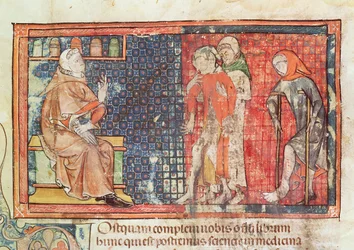 Ostquam compleui uobis o librum
hunc qui est postremus sciencie in medicina